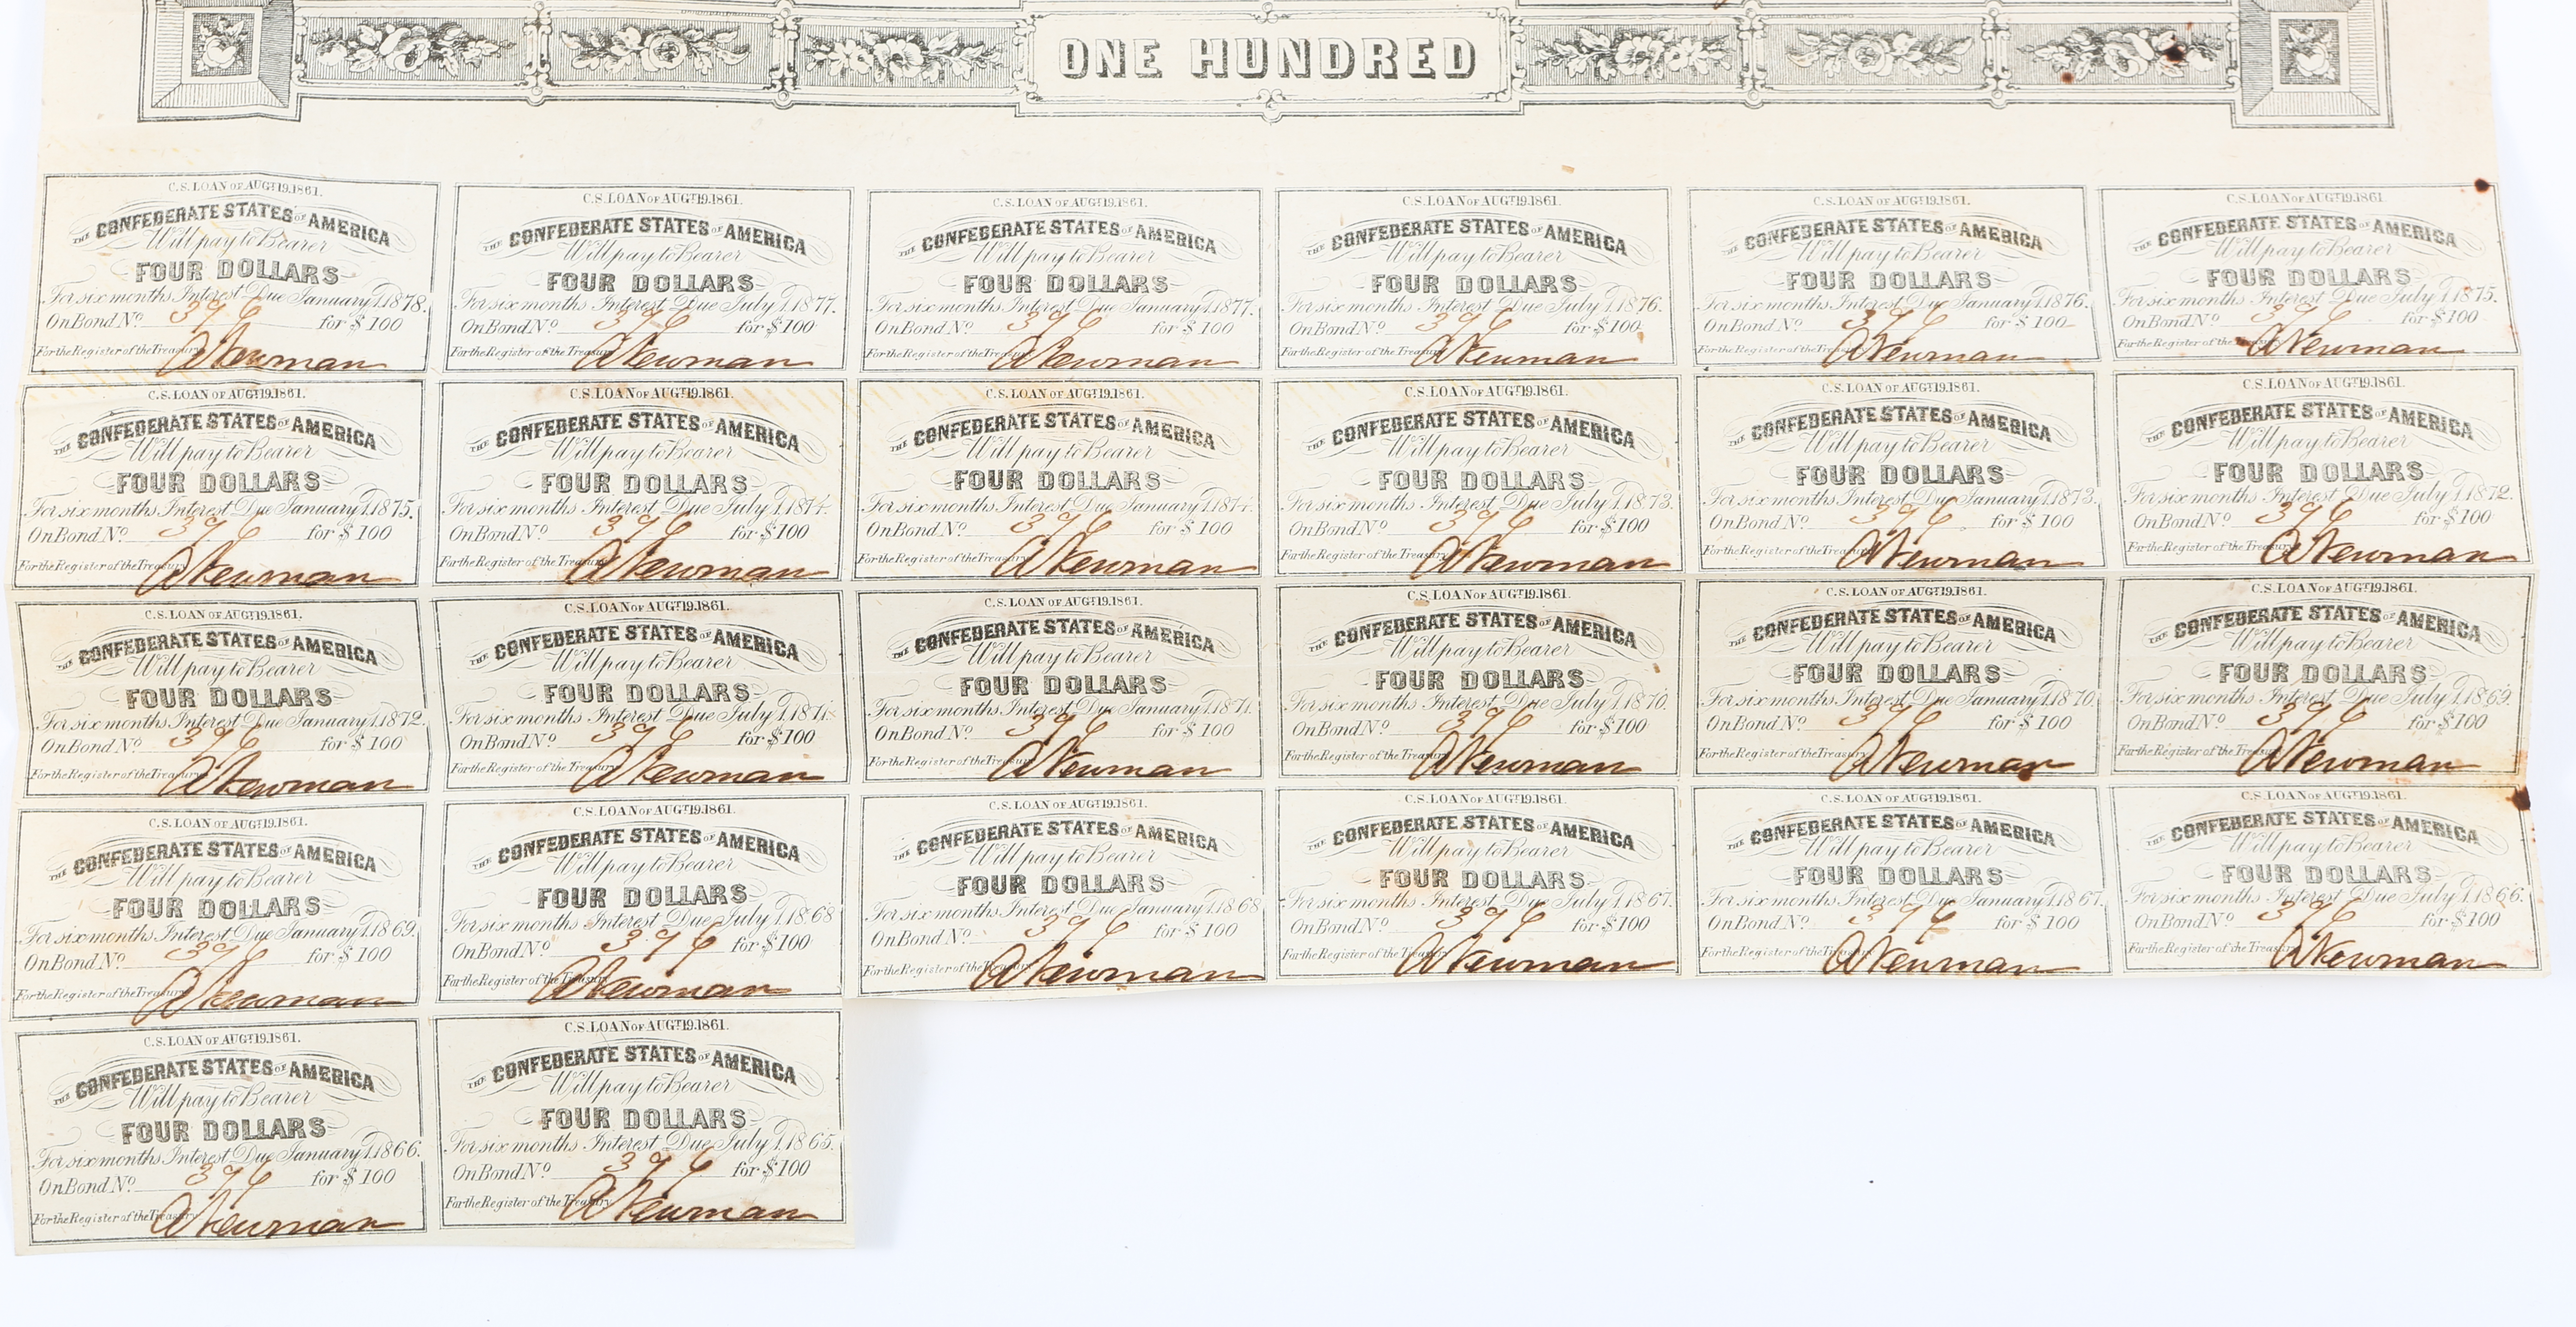 ONE HUNDRED
C.S. LOAN OF AUGT. 19. 1861.
THE CONFEDERATE STATES OF AMERICA
Will pay to Bearer
FOUR DOLLARS
For six months Interest Due January 1, 1878.
On Bond No. 396 for $100
For the Register of the Treasury A Newman
C.S. LOAN OF AUGT. 19. 1861.
THE CONFEDERATE STATES OF AMERICA
Will pay to Bearer
FOUR DOLLARS
For six months Interest Due July 1, 1877.
On Bond No. 396 for $100
For the Register of the Treasury A Newman
C.S. LOAN OF AUGT. 19. 1861.
THE CONFEDERATE STATES OF AMERICA
Will pay to Bearer
FOUR DOLLARS
For six months Interest Due January 1, 1877.
On Bond No. 396 for $100
For the Register of the Treasury A Newman
C.S. LOAN OF AUGT. 19. 1861.
THE CONFEDERATE STATES OF AMERICA
Will pay to Bearer
FOUR DOLLARS
For six months Interest Due July 1, 1876.
On Bond No. 396 for $100
For the Register of the Treasury A Newman
C.S. LOAN OF AUGT. 19. 1861.
THE CONFEDERATE STATES OF AMERICA
Will pay to Bearer
FOUR DOLLARS
For six months Interest Due January 1, 1876.
On Bond No. 396 for $100
For the Register of the Treasury A Newman
C.S. LOAN OF AUGT. 19. 1861.
THE CONFEDERATE STATES OF AMERICA
Will pay to Bearer
FOUR DOLLARS
For six months Interest Due July 1, 1875.
On Bond No. 396 for $100
For the Register of the Treasury A Newman
C.S. LOAN OF AUGT. 19. 1861.
THE CONFEDERATE STATES OF AMERICA
Will pay to Bearer
FOUR DOLLARS
For six months Interest Due January 1, 1875.
On Bond No. 396 for $100
For the Register of the Treasury A Newman
C.S. LOAN OF AUGT. 19. 1861.
THE CONFEDERATE STATES OF AMERICA
Will pay to Bearer
FOUR DOLLARS
For six months Interest Due July 1, 1874.
On Bond No. 396 for $100
For the Register of the Treasury A Newman
C.S. LOAN OF AUGT. 19. 1861.
THE CONFEDERATE STATES OF AMERICA
Will pay to Bearer
FOUR DOLLARS
For six months Interest Due January 1, 1874.
On Bond No. 396 for $100
For the Register of the Treasury A Newman
C.S. LOAN OF AUGT. 19. 1861.
THE CONFEDERATE STATES OF AMERICA
Will pay to Bearer
FOUR DOLLARS
For six months Interest Due July 1, 1873.
On Bond No. 396 for $100
For the Register of the Treasury A Newman
C.S. LOAN OF AUGT. 19. 1861.
THE CONFEDERATE STATES OF AMERICA
Will pay to Bearer
FOUR DOLLARS
For six months Interest Due January 1, 1873.
On Bond No. 396 for $100
For the Register of the Treasury A Newman
C.S. LOAN OF AUGT. 19. 1861.
THE CONFEDERATE STATES OF AMERICA
Will pay to Bearer
FOUR DOLLARS
For six months Interest Due July 1, 1872.
On Bond No. 396 for $100
For the Register of the Treasury A Newman
C.S. LOAN OF AUGT. 19. 1861.
THE CONFEDERATE STATES OF AMERICA
Will pay to Bearer
FOUR DOLLARS
For six months Interest Due January 1, 1872.
On Bond No. 396 for $100
For the Register of the Treasury A Newman
C.S. LOAN OF AUGT. 19. 1861.
THE CONFEDERATE STATES OF AMERICA
Will pay to Bearer
FOUR DOLLARS
For six months Interest Due July 1, 1871.
On Bond No. 396 for $100
For the Register of the Treasury A Newman
C.S. LOAN OF AUGT. 19. 1861.
THE CONFEDERATE STATES OF AMERICA
Will pay to Bearer
FOUR DOLLARS
For six months Interest Due January 1, 1871.
On Bond No. 396 for $100
For the Register of the Treasury A Newman
C.S. LOAN OF AUGT. 19. 1861.
THE CONFEDERATE STATES OF AMERICA
Will pay to Bearer
FOUR DOLLARS
For six months Interest Due July 1, 1870.
On Bond No. 396 for $100
For the Register of the Treasury A Newman
C.S. LOAN OF AUGT. 19. 1861.
THE CONFEDERATE STATES OF AMERICA
Will pay to Bearer
FOUR DOLLARS
For six months Interest Due January 1, 1870.
On Bond No. 396 for $100
For the Register of the Treasury A Newman
C.S. LOAN OF AUGT. 19. 1861.
THE CONFEDERATE STATES OF AMERICA
Will pay to Bearer
FOUR DOLLARS
For six months Interest Due July 1, 1869.
On Bond No. 396 for $100
For the Register of the Treasury A Newman
C.S. LOAN OF AUGT. 19. 1861.
THE CONFEDERATE STATES OF AMERICA
Will pay to Bearer
FOUR DOLLARS
For six months Interest Due January 1, 1869.
On Bond No. 396 for $100
For the Register of the Treasury A Newman
C.S. LOAN OF AUGT. 19. 1861.
THE CONFEDERATE STATES OF AMERICA
Will pay to Bearer
FOUR DOLLARS
For six months Interest Due July 1, 1868
On Bond No. 396 for $100
For the Register of the Treasury A Newman
C.S. LOAN OF AUGT. 19. 1861.
THE CONFEDERATE STATES OF AMERICA
Will pay to Bearer
FOUR DOLLARS
For six months Interest Due January 1, 1868
On Bond No. 396 for $100
For the Register of the Treasury A Newman
C.S. LOAN OF AUGT. 19. 1861.
THE CONFEDERATE STATES OF AMERICA
Will pay to Bearer
FOUR DOLLARS
For six months Interest Due July 1, 1867.
On Bond No. 396 for $100
For the Register of the Treasury A Newman
C.S. LOAN OF AUGT. 19. 1861.
THE CONFEDERATE STATES OF AMERICA
Will pay to Bearer
FOUR DOLLARS
For six months Interest Due January 1, 1867.
On Bond No. 396 for $100
For the Register of the Treasury A Newman
C.S. LOAN OF AUGT. 19. 1861.
THE CONFEDERATE STATES OF AMERICA
Will pay to Bearer
FOUR DOLLARS
For six months Interest Due July 1, 1866.
On Bond No. 396 for $100
For the Register of the Treasury A Newman
C.S. LOAN OF AUGT. 19. 1861.
THE CONFEDERATE STATES OF AMERICA
Will pay to Bearer
FOUR DOLLARS
For six months Interest Due January 1, 1866.
On Bond No. 396 for $100
For the Register of the Treasury A Newman
C.S. LOAN OF AUGT. 19. 1861.
THE CONFEDERATE STATES OF AMERICA
Will pay to Bearer
FOUR DOLLARS
For six months Interest Due July 1, 1865.
On Bond No. 396 for $100
For the Register of the Treasury A Newman